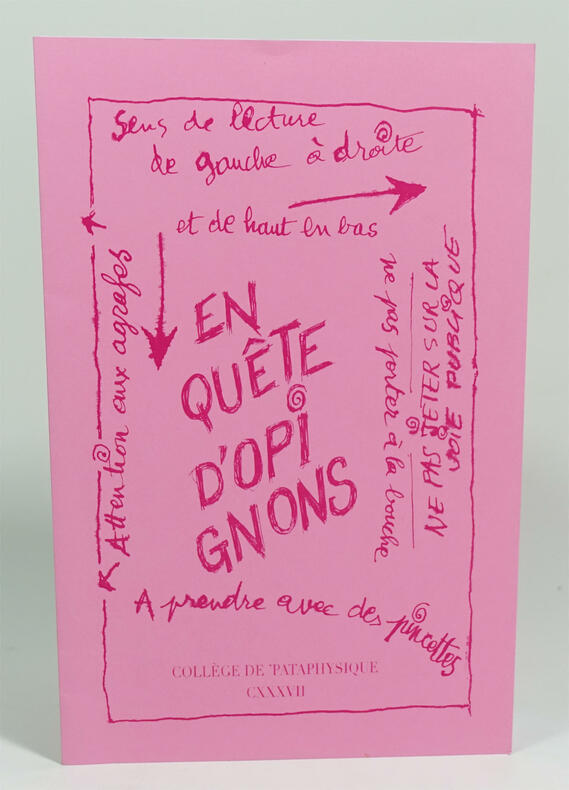 Sens de lecture
de gauche à droite
et de haut en bas
Attention aux agrafes
EN
QUÊTE
D'OPI
GNONS
ne pas porter à la bouche
NE PAS JETER SUR LA
VOIE PUBLIQUE
A prendre avec des pincettes
COLLÈGE DE 'PATAPHYSIQUE
CXXXVII